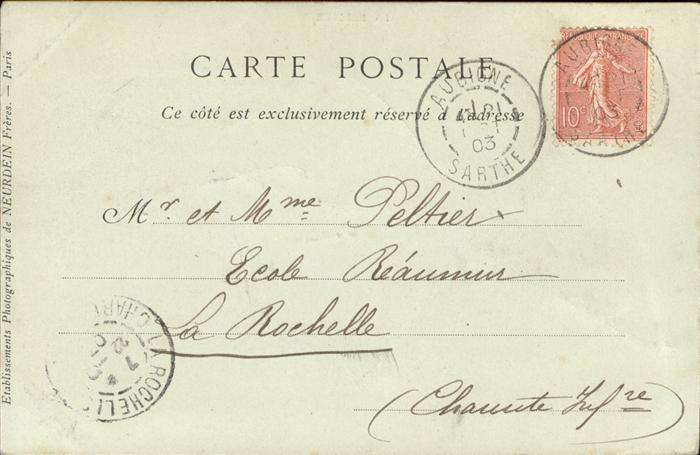 CARTE POSTALE
Ce côté est exclusivement réservé à l'adresse
AUBIGNÉ
03
SARTHE
AUBIGNÉ
03
SARTHE
10c
Mr. et Mme Peltier
Ecole Réaumur
La Rochelle
(Charente Infre)
LA ROCHELLE
Etablissements Photographiques de NEURDEIN Frères. — Paris